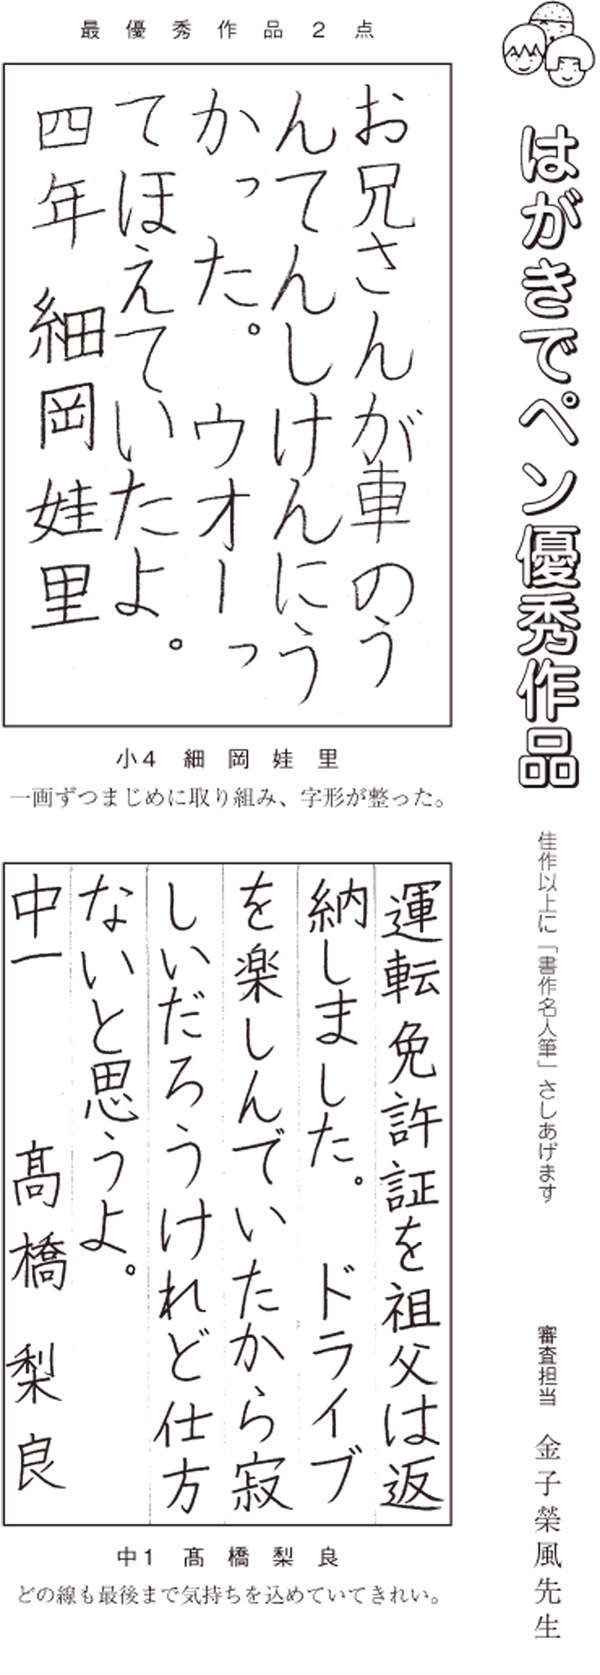 はがきでペン優秀作品
佳作以上に「書作名人筆」さしあげます
審査担当 金子榮風先生
最優秀作品2点
お兄さんが車のう
んてんしけんにう
かった。 ウオーっ
てほえていたよ。
四年 細岡娃里
小4 細岡娃里
一画ずつまじめに取り組み、字形が整った。
運転免許証を祖父は返
納しました。 ドライブ
を楽しんでいたから寂
しいだろうけれど仕方
ないと思うよ。
中一 髙橋梨良
中1 髙橋梨良
どの線も最後まで気持ちを込めていてきれい。